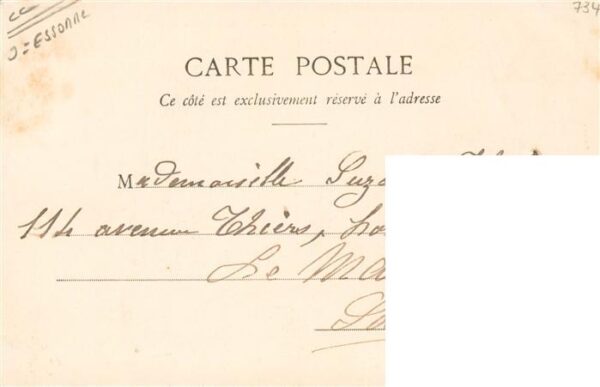 734
J=ESSONNE
CARTE POSTALE
Ce côté est exclusivement réservé à l'adresse
Mademoiselle
114 avenue Thiers,
Le